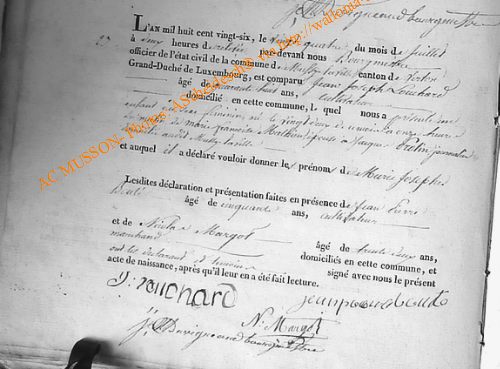 J. Duvigneaud bourgmestre
L'AN mil huit cent vingt-six, le vingt quatre du mois de juillet
à cinq heures de relevée par-devant nous Bourgmestre
officier de l'état civil de la commune de Mussy-la-ville canton de Virton
Grand-Duché de Luxembourg, est comparu jean joseph Louchard
âgé de quarante huit ans, cultivateur
domicilié en cette commune, le quel nous a présenté un
enfant du sexe féminin né le vingt deux du courant à onze heures
de marie françoise épouse à jacque Pretin journalier
audit Mussy-la-ville
et auquel il a déclaré vouloir donner les prénoms de Marie Josephe
Lesdites déclaration et présentation faites en présence de jean Pierre
âgé de cinquante ans, cultivateur
et de Nicolas Margot âgé de trente deux ans,
marchand domiciliés en cette commune, et
ont les déclarant et témoins signé avec nous le présent
acte de naissance, après qu'il leur en a été fait lecture.
N. Margot
J. Duvigneaud bourgmestre
AC MUSSON- Photos Asthedean via http://wallonia